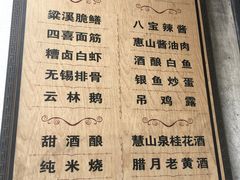 梁溪脆鳝
四喜面筋
糟卤白虾
无锡排骨
云林鹅
甜酒酿
纯米烧
八宝辣酱
惠山酱油肉
酒酿白鱼
银鱼炒蛋
吊鸡露
惠山泉桂花酒
腊月老黄酒